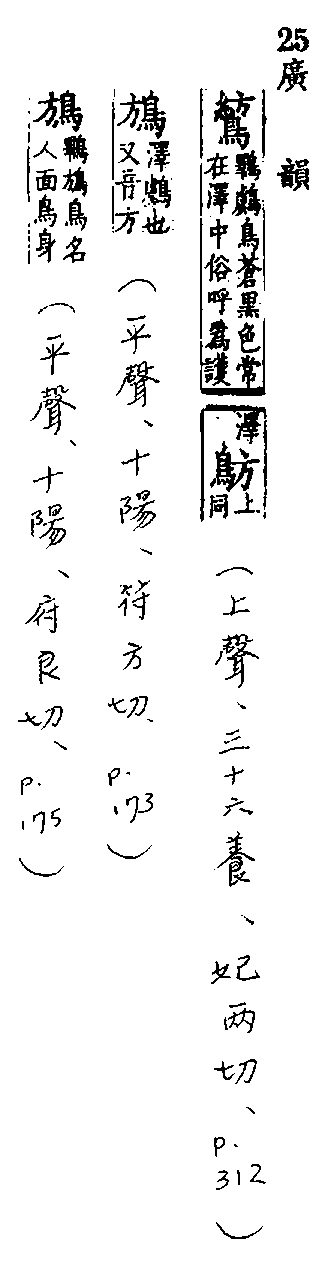 25廣韻
鶭鸅鸆鳥蒼黑色常在澤中俗呼為護澤鳥方上同(上聲、三十六養、妃两切、p.312)
鴋澤鸆也又音方(平聲、十陽、符方切、p.173)
鴋鸅鴋鳥名人面鳥身(平聲、十陽、府良切、p.175)